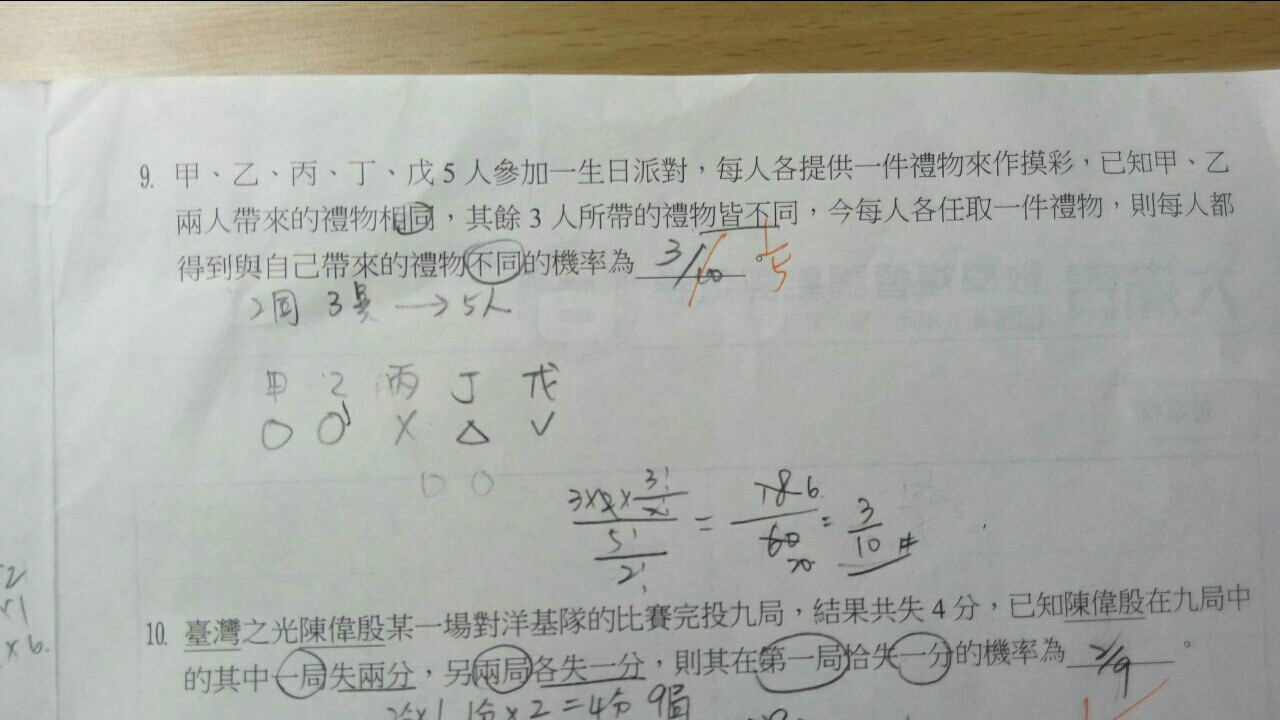 9. 甲、乙、丙、丁、戊5人參加一生日派對,每人各提供一件禮物來作摸彩,已知甲、乙
兩人帶來的禮物相同,其餘3人所帶的禮物皆不同,今每人各任取一件禮物,則每人都
得到與自己帶來的禮物不同的機率為 3/10 。 1/5
2同 3異 → 5人
甲 乙 丙 丁 戊
○ ○ X △ ∨
○ ○
3×2×3!/2! / 5!/2! = 18 6 / 60 20 = 3/10 #
10. 臺灣之光陳偉殷某一場對洋基隊的比賽完投九局,結果共失4分,已知陳偉殷在九局中
的其中一局失兩分,另兩局各失一分,則其在第一局恰失一分的機率為 2/9 。
2分×1 1分×2=4分 9局
×6.